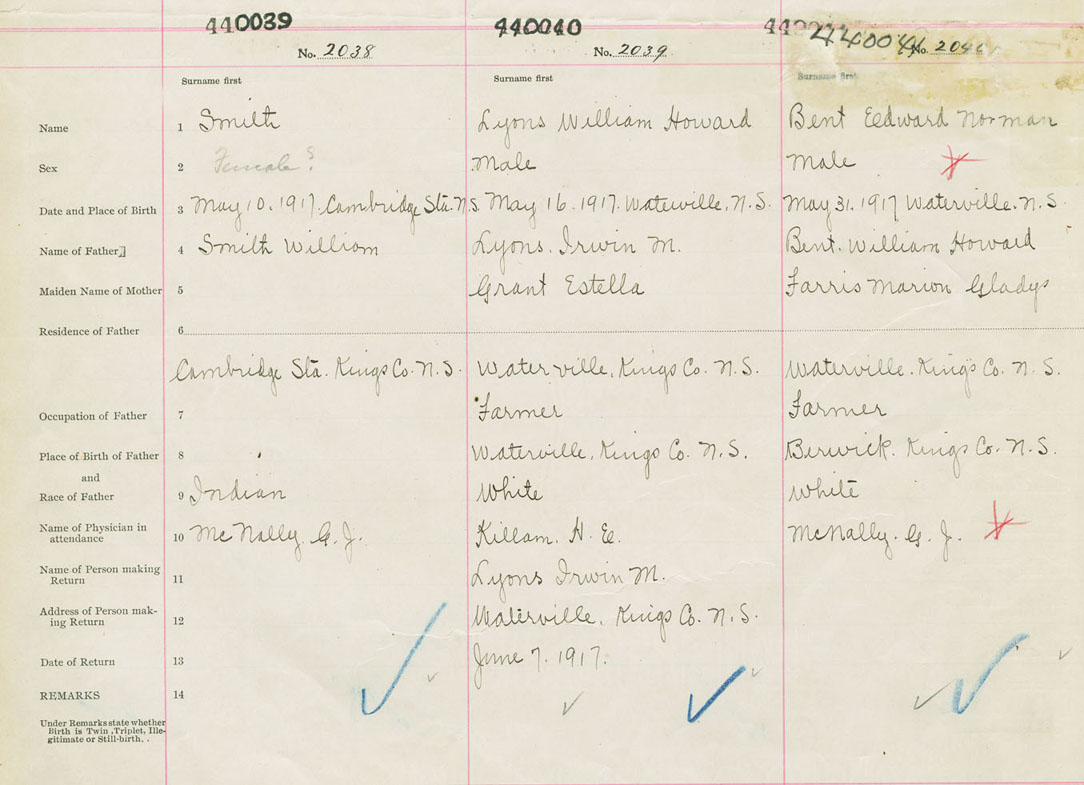 440039 440040
No. 2038 No. 2039 No.
Surname first Surname first Surname first
Name 1 Smith Lyons William Howard Bent Edward Norman
Sex 2 Female? Male Male
Date and Place of Birth 3 May 10. 1917. Cambridge Sta. N.S. May 16. 1917. Waterville, N.S. May 31. 1917 Waterville. N.S.
Name of Father] 4 Smith William Lyons. Irwin M. Bent. William Howard
Maiden Name of Mother 5 Grant Estella Farris Marion Gladys
Residence of Father 6
Cambridge Sta. Kings Co. N.S. Waterville, Kings Co. N.S. Waterville. Kings Co. N.S.
Occupation of Father 7 Farmer Farmer
Place of Birth of Father 8 Waterville, Kings Co. N.S. Berwick. Kings Co. N.S.
and
Race of Father 9 Indian White White
Name of Physician in
attendance 10 McNally. G. J. Killam. H. E. McNally. G. J.
Name of Person making
Return 11 Lyons Irwin M.
Address of Person mak-
ing Return 12 Waterville, Kings Co. N.S.
Date of Return 13 June 7. 1917.
REMARKS 14
Under Remarks state whether
Birth is Twin, Triplet, Ille-
gitimate or Still-birth. .